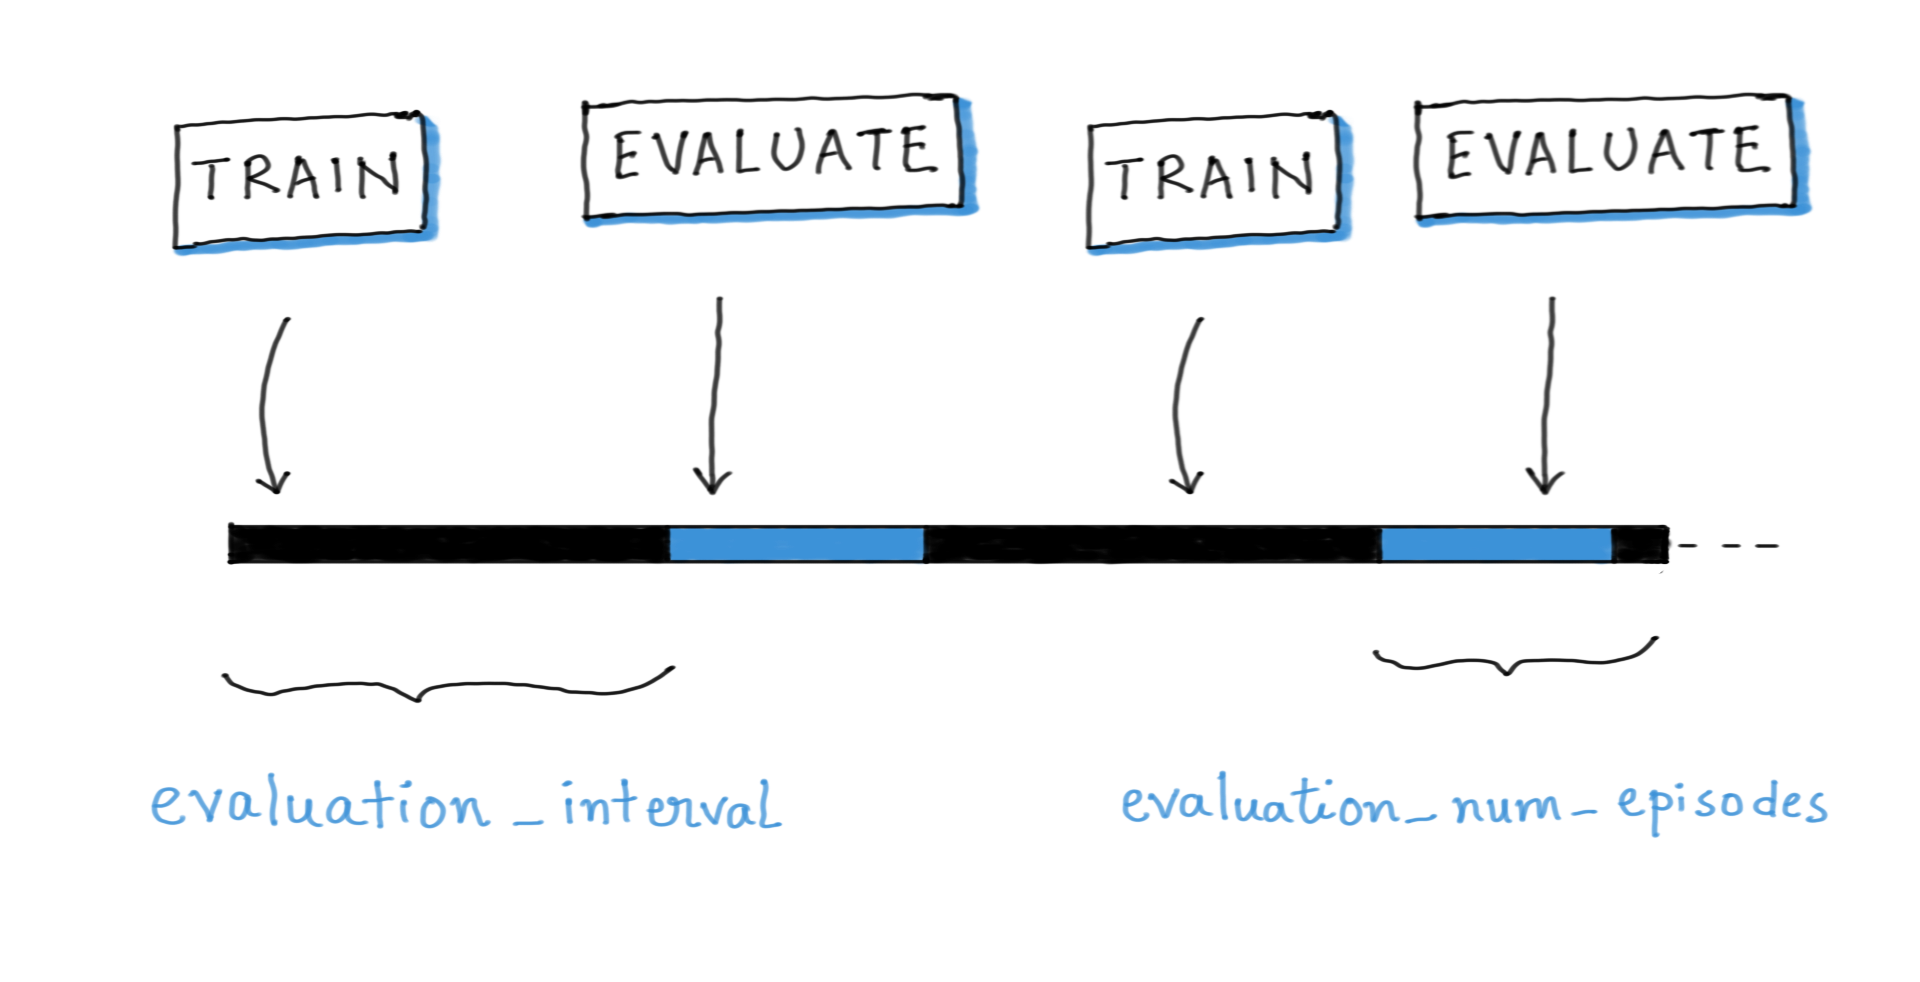 TRAIN
EVALUATE
TRAIN
EVALUATE
evaluation_interval
evaluation_num_episodes